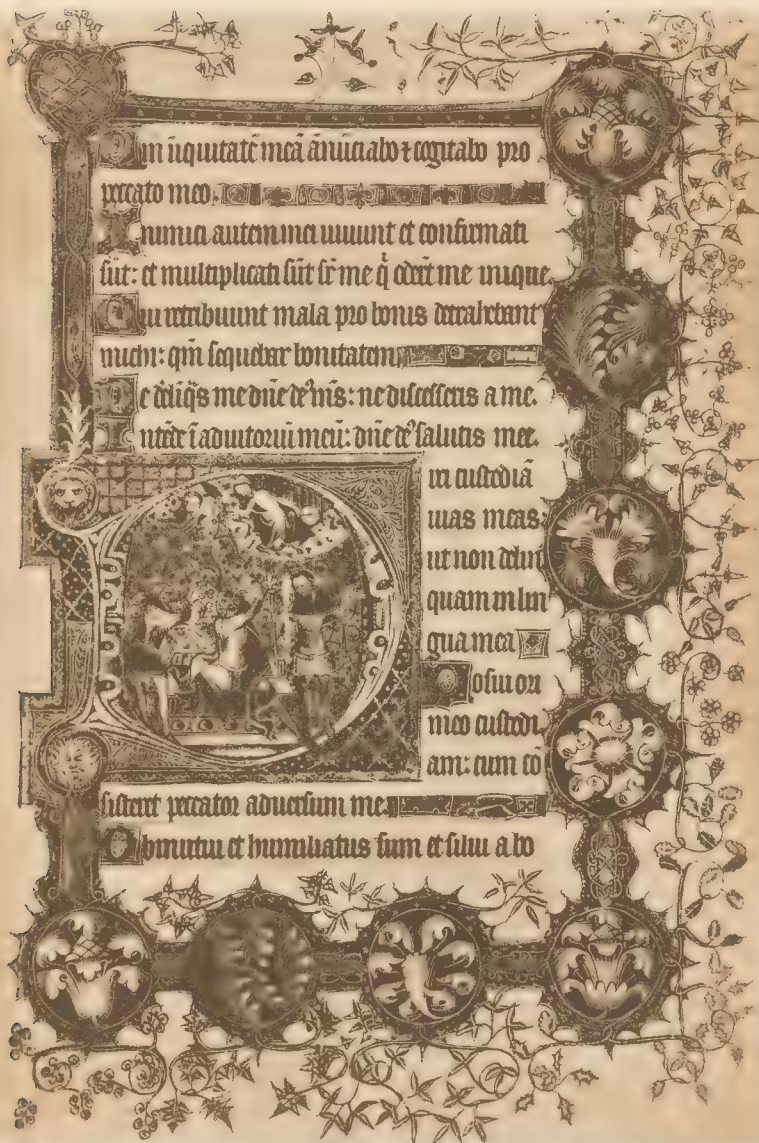 Qm̄ iniquitatē meā ānūciabo ⁊ cogitabo pro
peccato meo.
Inimici autem mei uiuunt et confirmati
sūt: et multiplicati sūt sr̄ me q̄ oderūt me inique
Qui retribuunt mala pro bonis detrahebant
michi: qm̄ sequebar bonitatem
Ne deliq̄s me dn̄e deꝰ mꝰs: ne discesseris a me.
Intēde ī adiutoriū meū: dn̄e deꝰ salutis mee.
Dixi custodiā
uias meas:
ut non delin
quam in lin
gua mea
Posui ori
meo custodi
am: cum cō
sisteret peccator aduersum me.
Obmutui et humiliatus sum et silui a bo